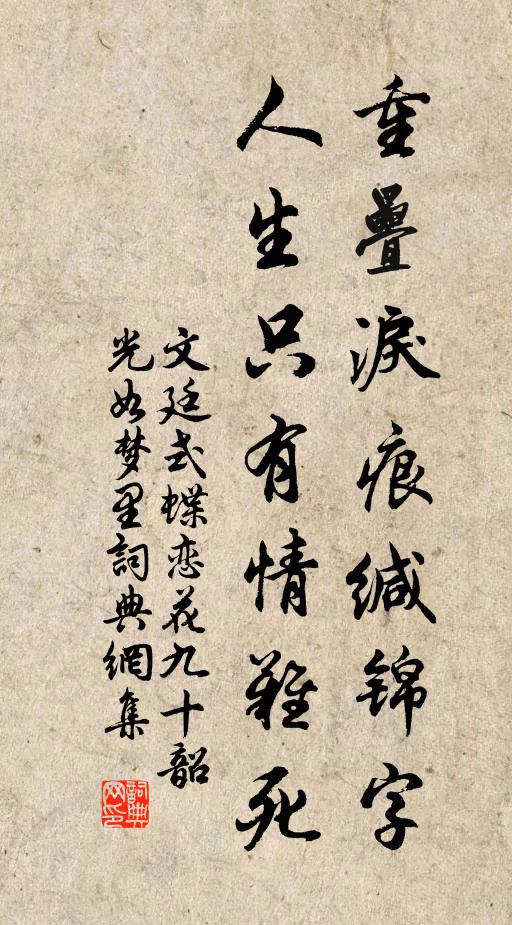 重疊淚痕缄锦字
人生只有情難死
文廷式蝶恋花九十韶
光如梦里詞典網集
詞典网印